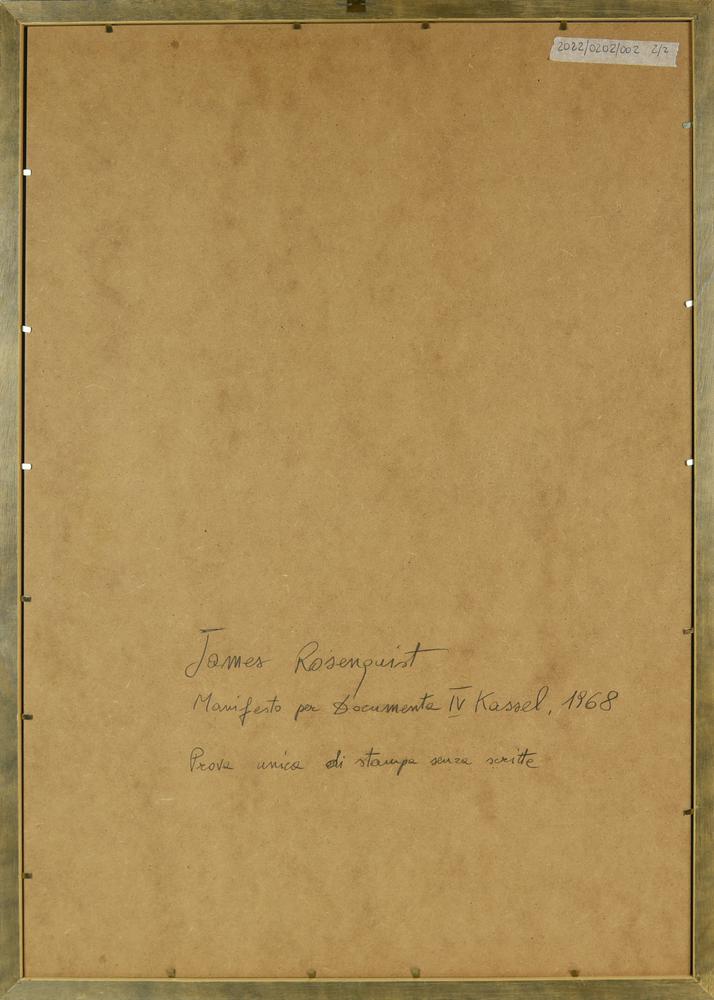 2022/0202/002 2/2
James Rosenquist
Manifesto per Documenta IV Kassel, 1968
Prova unica di stampa senza scritte